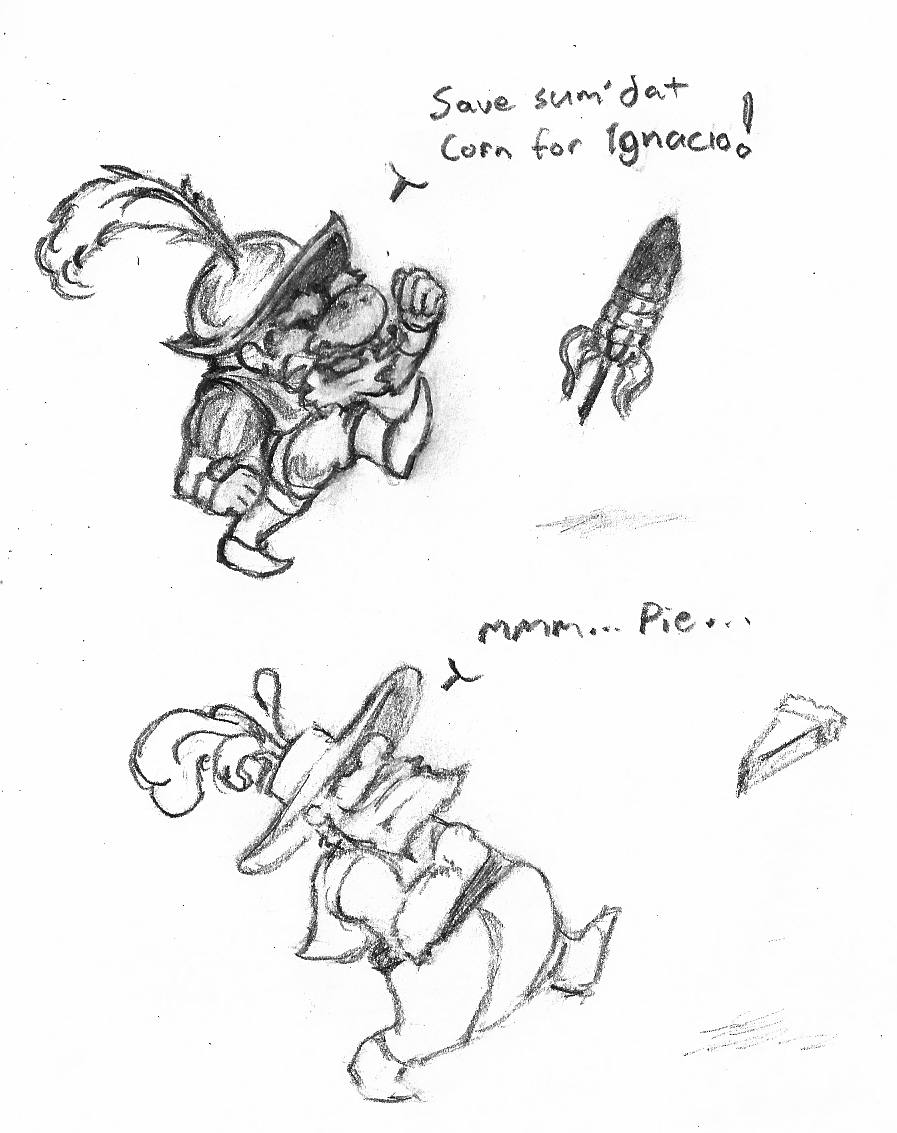 Save sum'dat
Corn for Ignacio!
mmm... Pie...